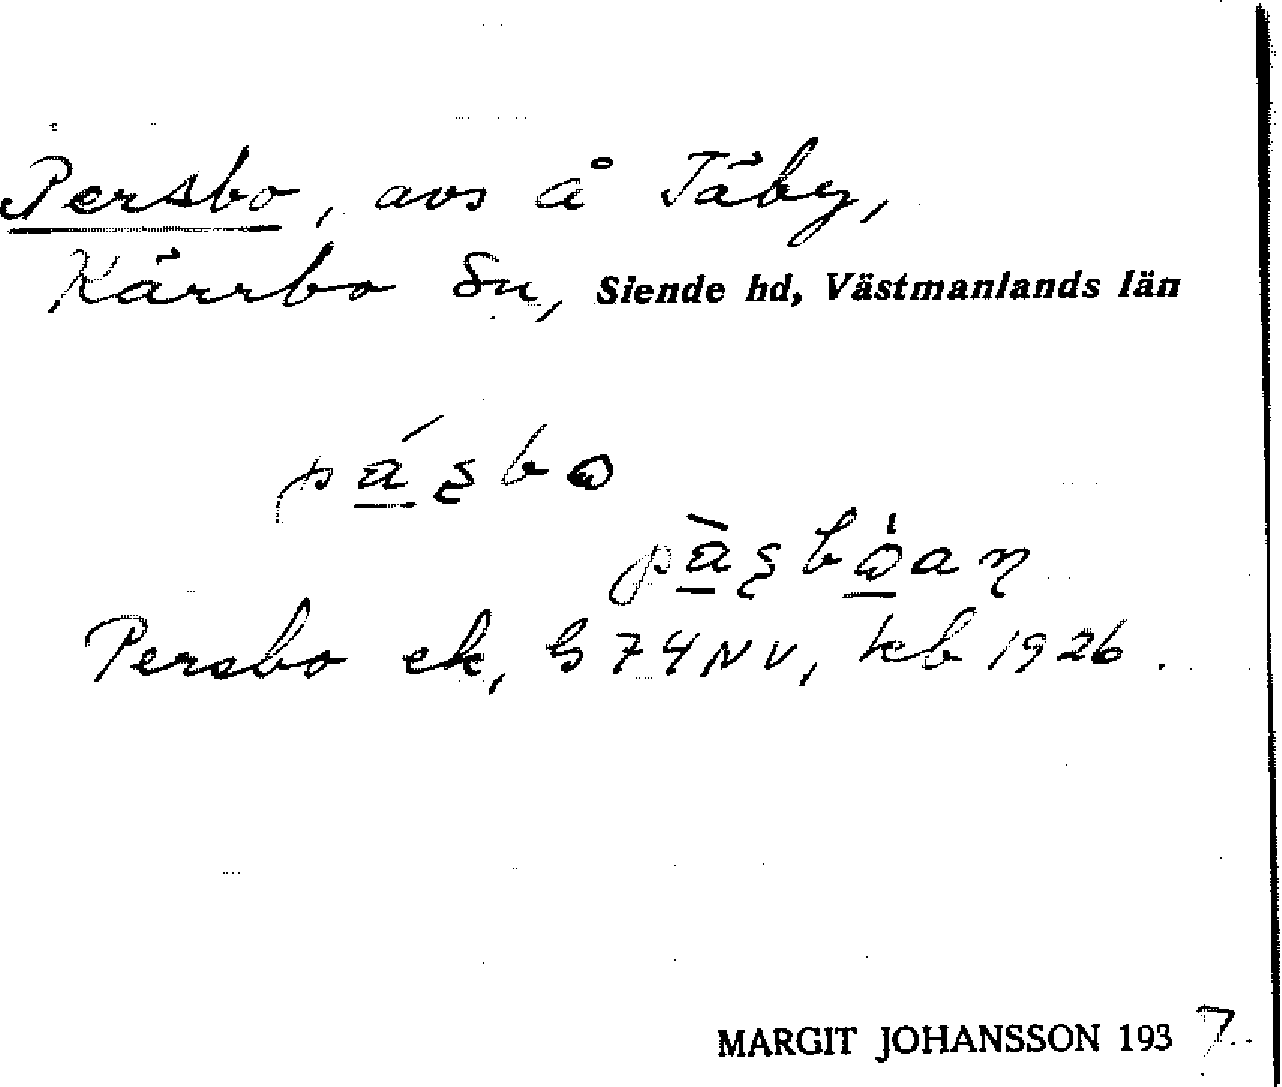 Persbo, avs å Täby,
Kärrbo Sn, Siende hd, Västmanlands län
Persbo ek, G 74 NV, kb 1926.
MARGIT JOHANSSON 1937